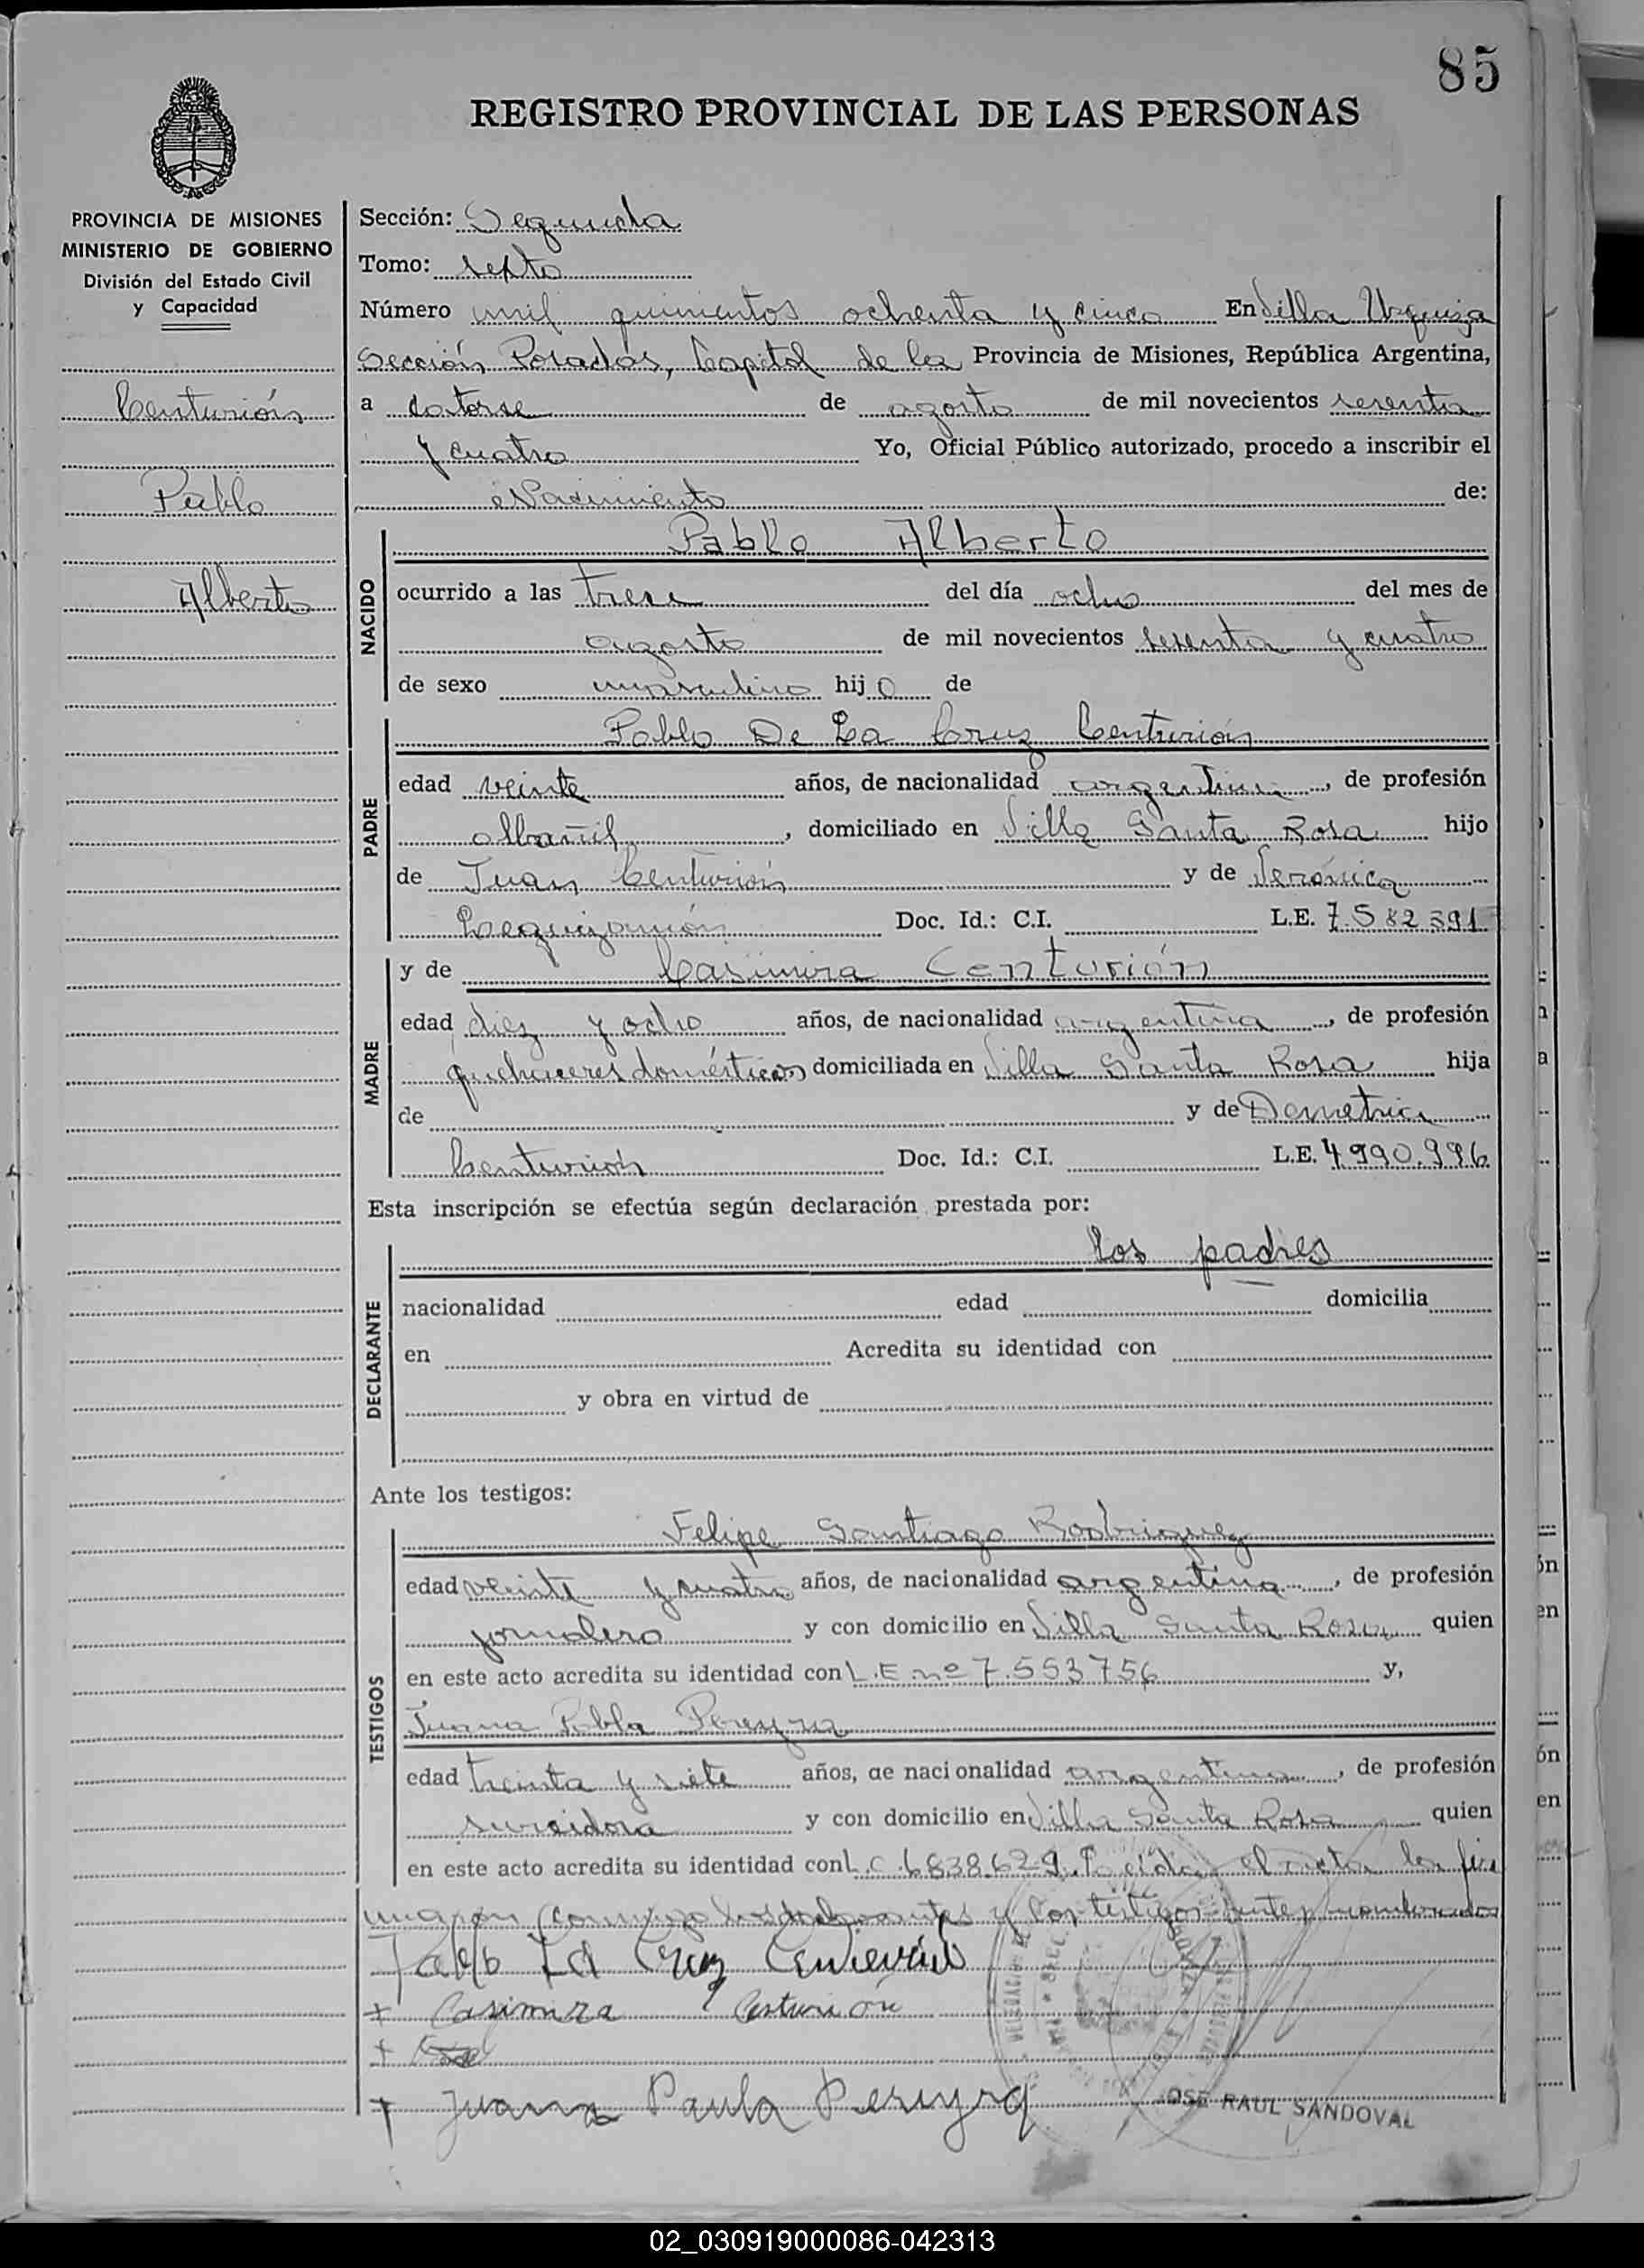 85
REGISTRO PROVINCIAL DE LAS PERSONAS
PROVINCIA DE MISIONES
MINISTERIO DE GOBIERNO
División del Estado Civil
y Capacidad
Centurión
Pablo
Alberto
Sección: Segunda
Tomo: sexto
Número mil quinientos ochenta y cinco En Villa Urquiza
Sección Posadas, Capital de la Provincia de Misiones, República Argentina,
a catorse de agosto de mil novecientos sesenta
y cuatro Yo, Oficial Público autorizado, procedo a inscribir el
Nacimiento de:
NACIDO
Pablo Alberto
ocurrido a las trese del día ocho del mes de
agosto de mil novecientos sesenta y cuatro
de sexo masculino hijo de
PADRE
Pablo De La Cruz Centurión
edad veinte años, de nacionalidad argentina, de profesión
albañil, domiciliado en Villa Santa Rosa hijo
de Juan Centurión y de Verónica
Doc. Id.: C.I. L.E. 7.582.391
MADRE
y de Casimira Centurión
edad diez y ocho años, de nacionalidad argentina, de profesión
quehaceres domésticos domiciliada en Villa Santa Rosa hija
de y de Demetria
Centurión Doc. Id.: C.I. L.E. 4.990.996
Esta inscripción se efectúa según declaración prestada por:
DECLARANTE
los padres
nacionalidad edad domicilia
en Acredita su identidad con
y obra en virtud de
Ante los testigos:
TESTIGOS
Felipe Santiago Rodriguez
edad veinte y cuatro años, de nacionalidad argentina, de profesión
jornalero y con domicilio en Villa Santa Rosa quien
en este acto acredita su identidad con L.E nº 7.553756 y,
Juana Pabla Pereyra
edad treinta y siete años, de nacionalidad argentina, de profesión
surcidora y con domicilio en Villa Santa Rosa quien
en este acto acredita su identidad con L.C. 6838629. el acta la
conmigo y los testigos
Pablo La Cruz Centurión
+ Casimira Centurión
+
+ Juana Paula Pereyra
JOSE RAUL SANDOVAL
02_030919000086-042313